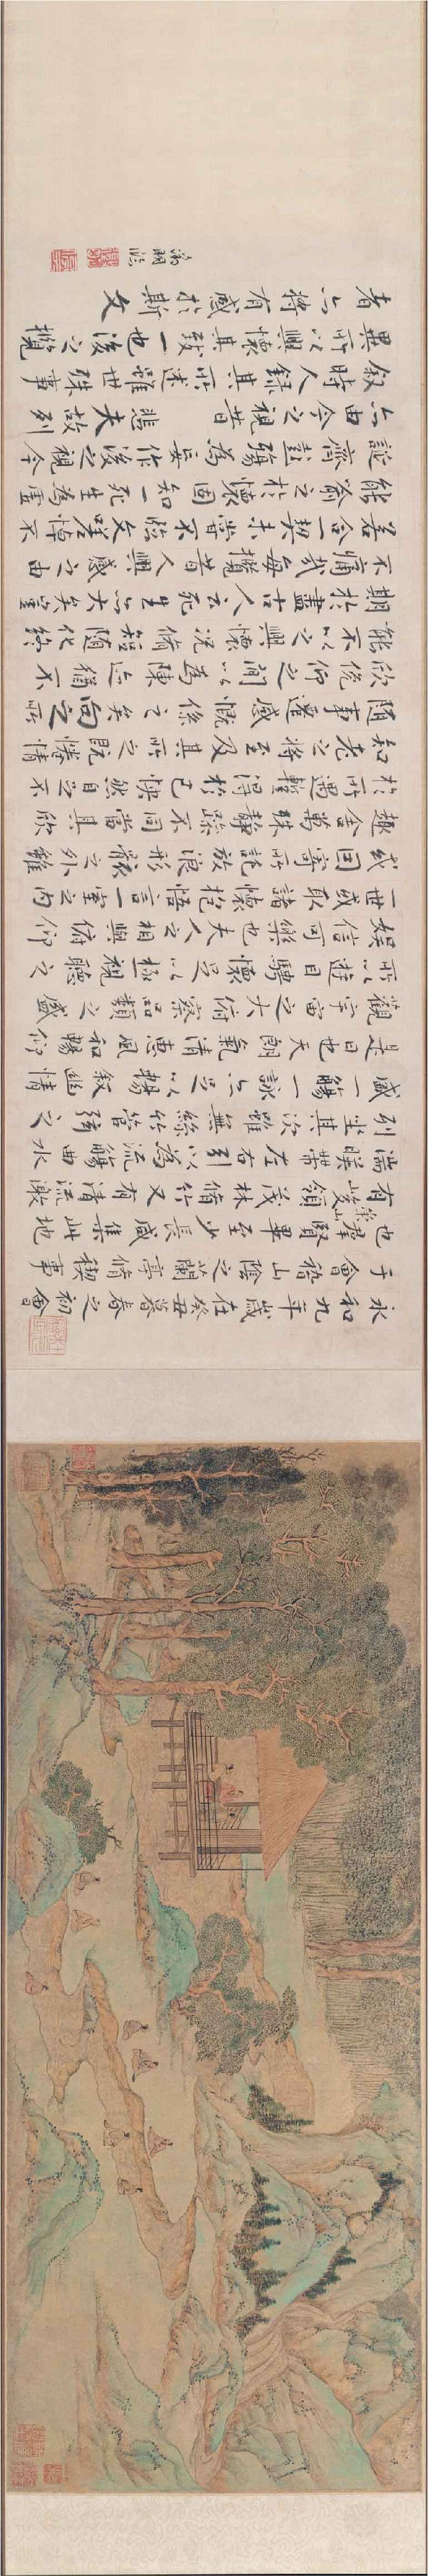 永和九年歲在癸丑暮春之初會
于會稽山陰之蘭亭脩禊事
也群賢畢至少長咸集此地
有崇山峻領茂林脩竹又有清流激
湍暎帶左右引以為流觴曲水
列坐其次雖無絲竹管弦之
盛一觴一詠亦足以暢敘幽情
是日也天朗氣清惠風和暢仰
觀宇宙之大俯察品類之盛
所以遊目騁懷足以極視聽之
娛信可樂也夫人之相與俯仰
一世或取諸懷抱悟言一室之內
或因寄所託放浪形骸之外雖
趣舍萬殊靜躁不同當其欣
於所遇蹔得於己怏然自足不
知老之將至及其所之既惓情
隨事遷感慨係之矣向之所
欣俛仰之間以為陳迹猶不
能不以之興懷況脩短隨化終
期於盡古人云死生亦大矣豈
不痛哉每攬昔人興感之由
若合一契未嘗不臨文嗟悼不
能喻之於懷固知一死生為虛
誕齊彭殤為妄作後之視今
亦由今之視昔悲夫故列
敘時人錄其所述雖世殊事
異所以興懷其致一也後之攬
者亦將有感於斯文
徵明臨